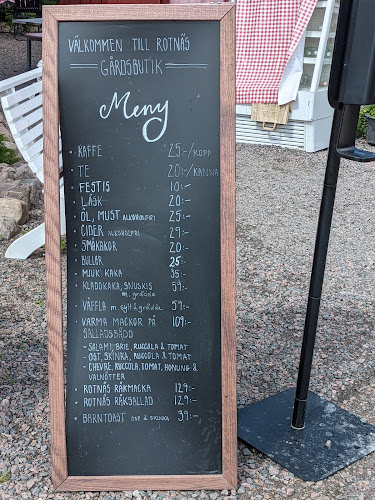 VÄLKOMMEN TILL ROTNÄS
GÅRDSBUTIK
Meny
• KAFFE 25:-/KOPP
• TE 20:-/KANNA
• FESTIS 10:-
• LÄSK 20:-
• ÖL, MUST ALKOHOLFRI 25:-
• CIDER ALKOHOLFRI 29:-
• SMÅKAKOR 20:-
• BULLAR 25:-
• MJUK KAKA 35:-
• KLADDKAKA, SNUSKIS 59:-
m. grädde
• VÅFFLA m. sylt & grädde 59:-
• VARMA MACKOR PÅ 109:-
SALLADSBÄDD
- SALAMI, BRIE, RUCCOLA & TOMAT
- OST, SKINKA, RUCCOLA & TOMAT
- CHEVRE, RUCCOLA, TOMAT, HONUNG &
VALNÖTTER
• ROTNÄS RÄKMACKA 129:-
• ROTNÄS RÄKSALLAD 129:-
• BARNTOAST OST & SKINKA 39:-